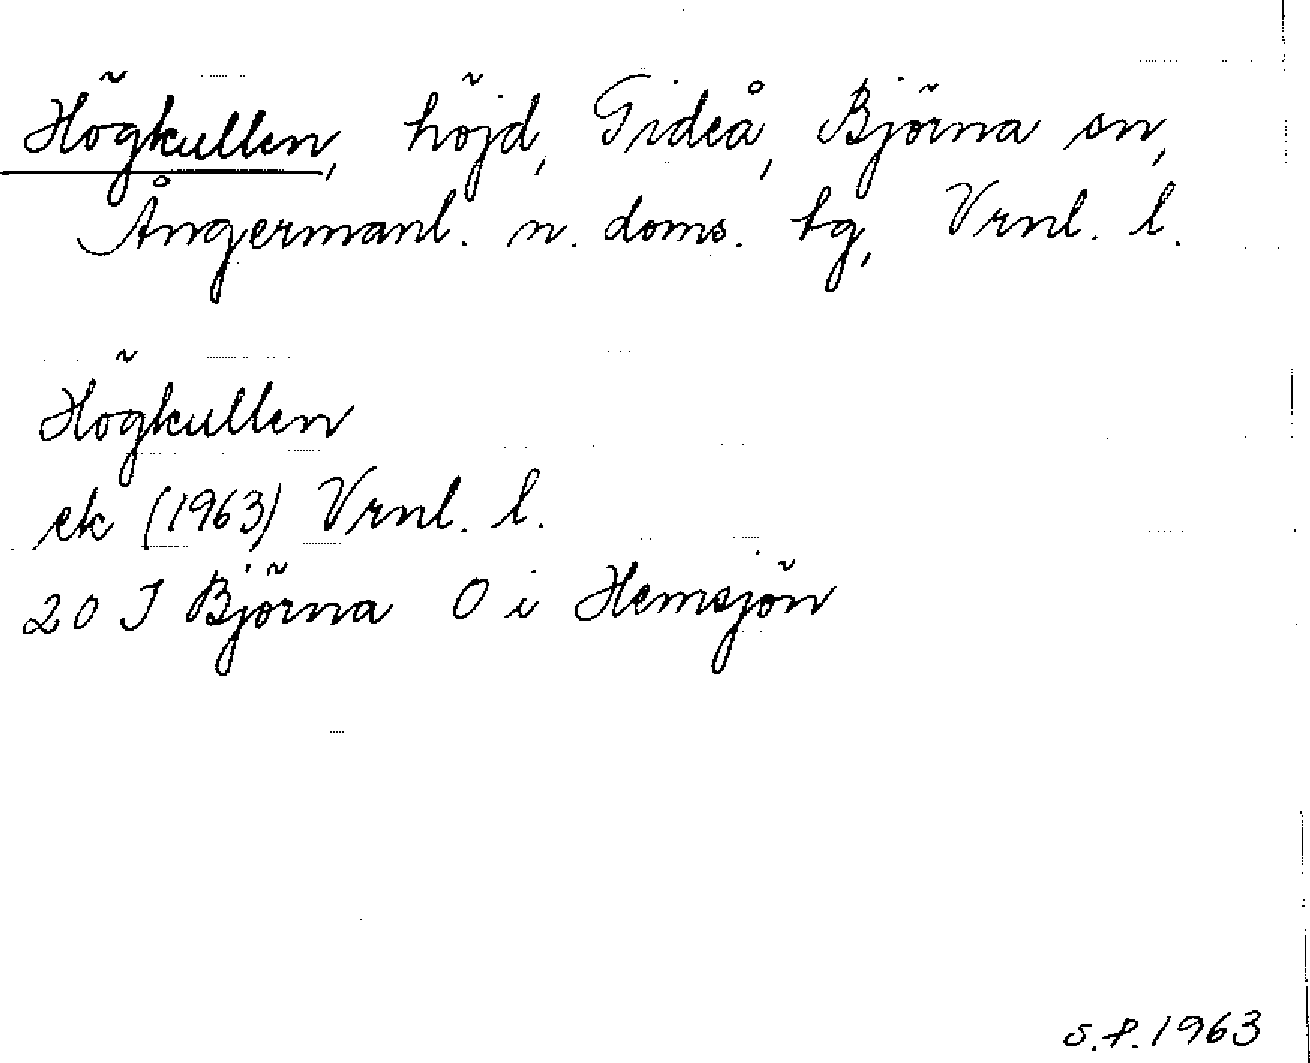 Högkullen, höjd, Gideå, Björna sn,
Ångermanl. n. doms. tg, Vrnl. l.
Högkullen
ek (1963) Vrnl. l.
20 I Björna O i Hemsjön
S.P. 1963